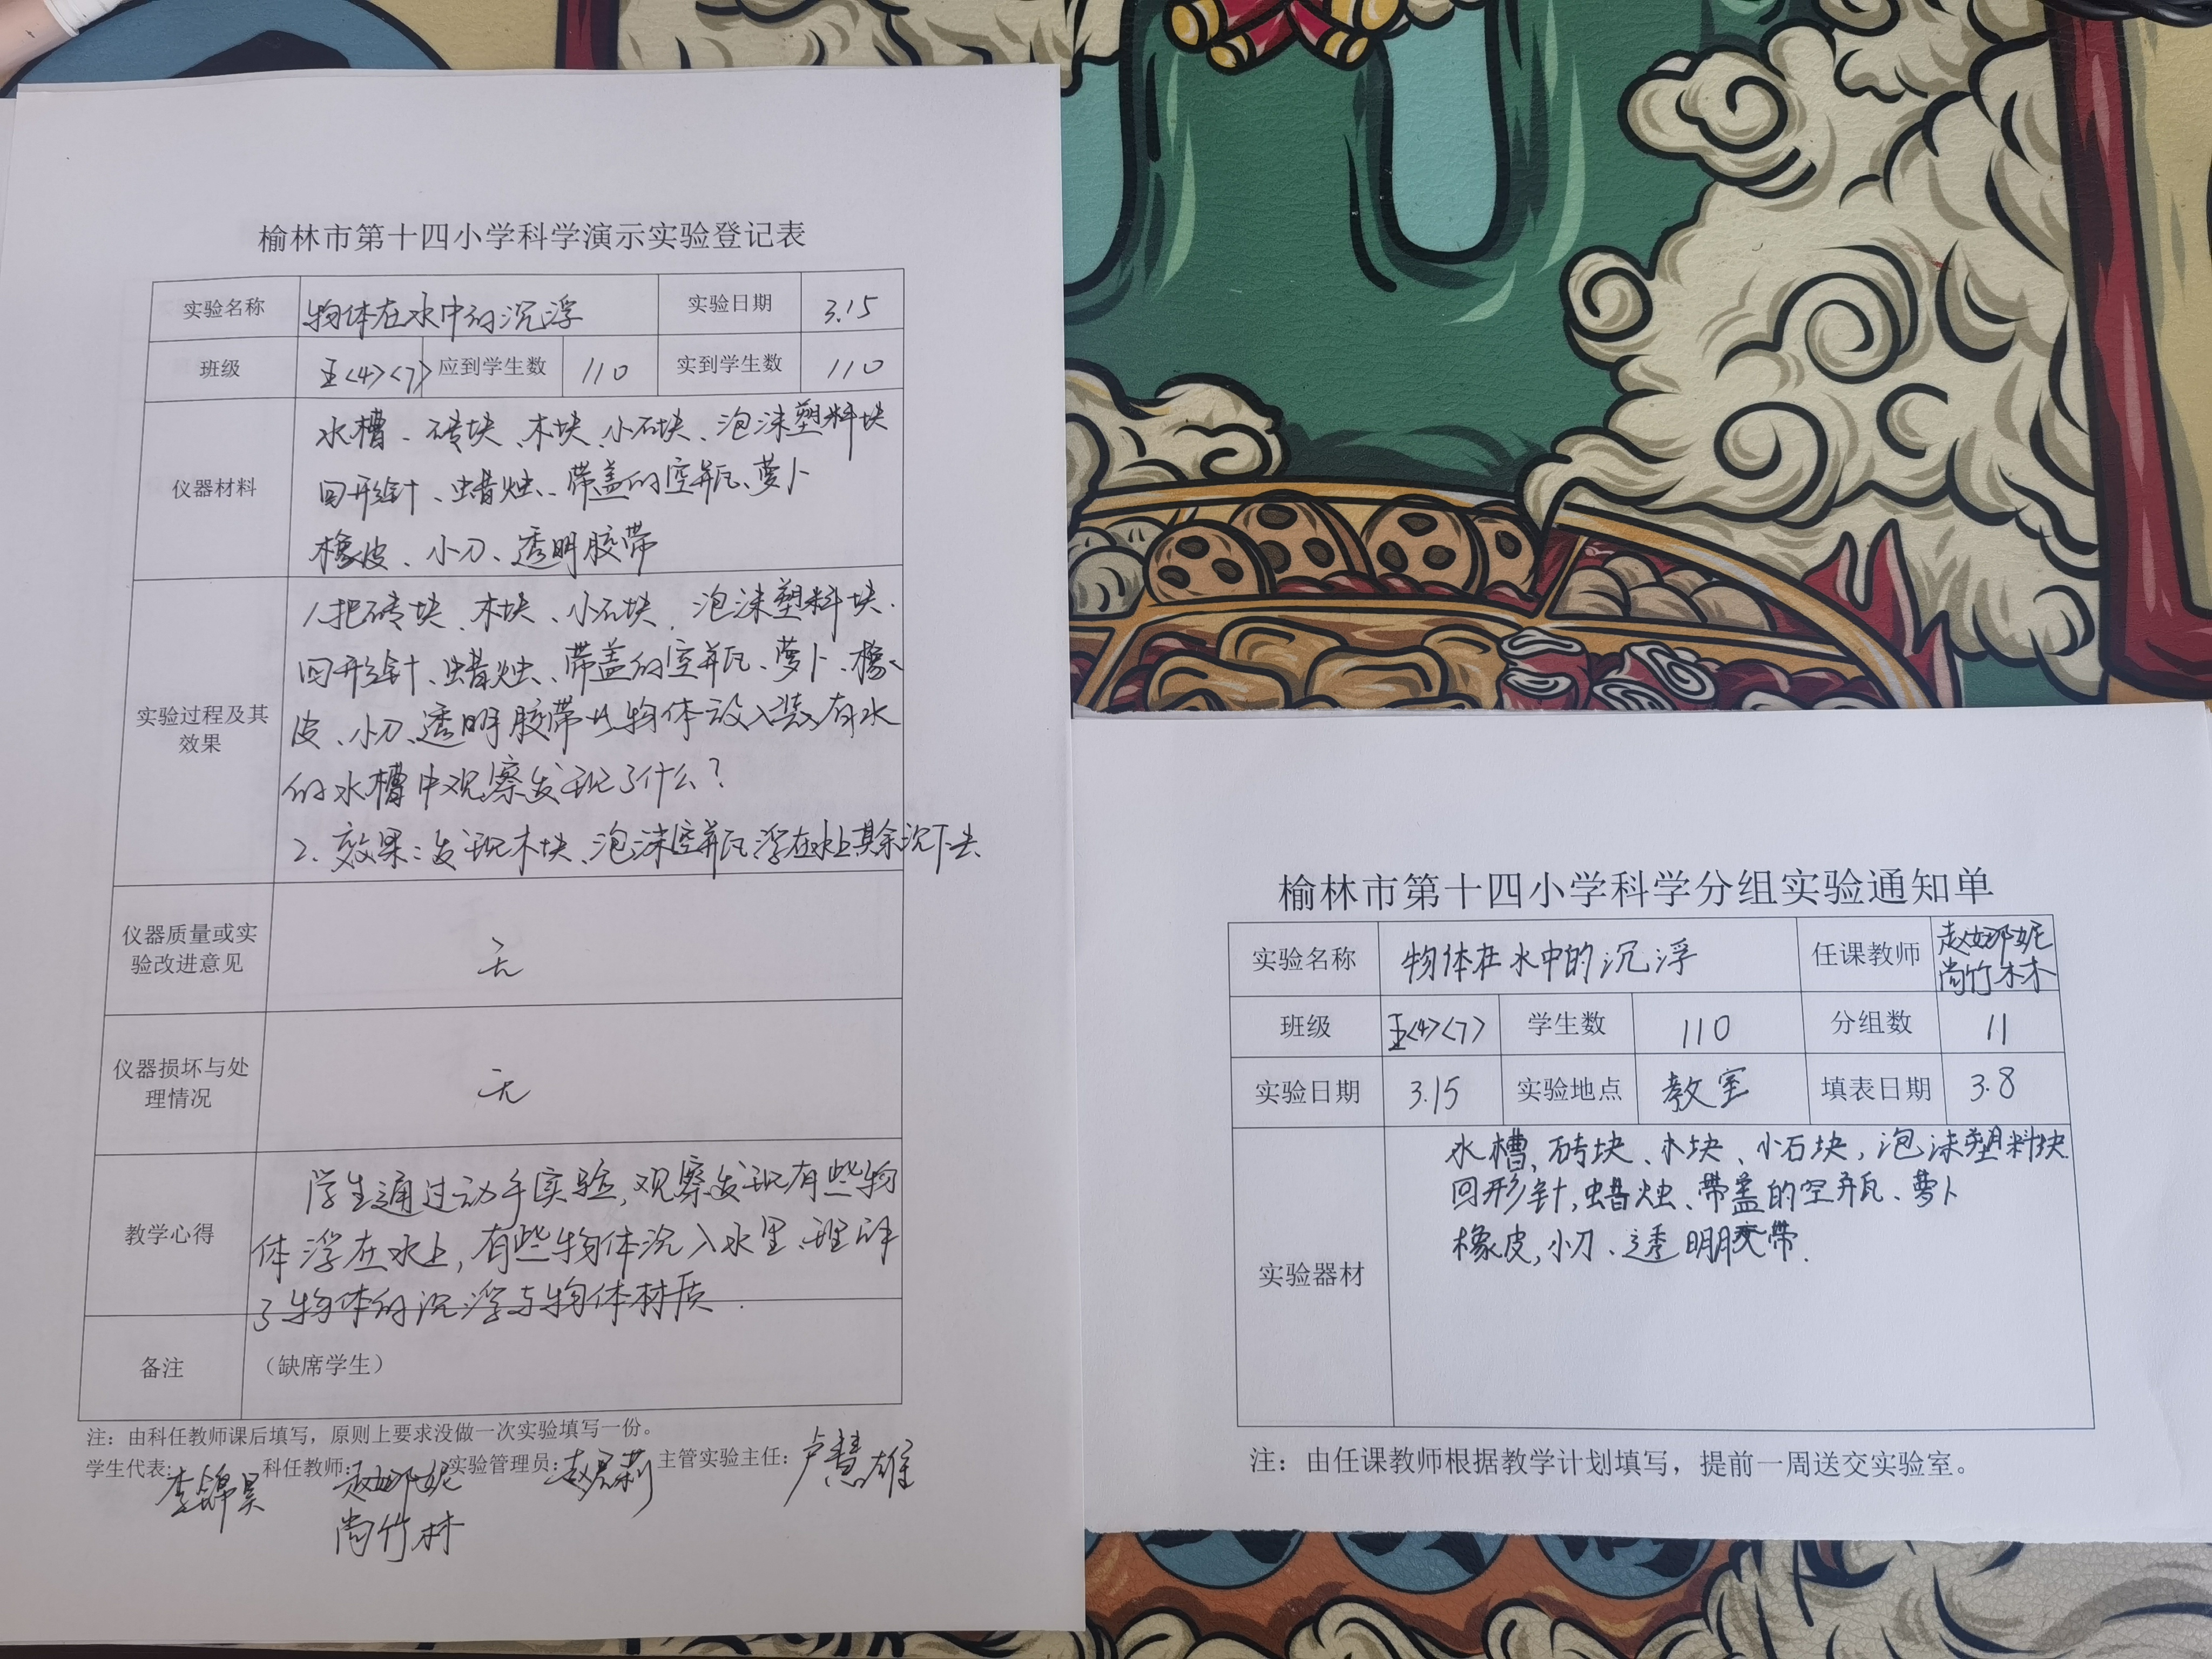 榆林市第十四小学科学演示实验登记表
实验名称 物体在水中的沉浮 实验日期 3.15
班级 五<4><7> 应到学生数 110 实到学生数 110
仪器材料
水槽、砖块、木块、小石块、泡沫塑料块
回形针、蜡烛、带盖的空瓶、萝卜
橡皮、小刀、透明胶带
实验过程及其
效果
1.把砖块、木块、小石块、泡沫塑料块、
回形针、蜡烛、带盖的空瓶、萝卜、橡
皮、小刀、透明胶带共物体放入装有水
的水槽中观察发现了什么？
2、效果：发现木块、泡沫空瓶浮在水上其余沉下去
仪器质量或实
验改进意见
无
仪器损坏与处
理情况
无
教学心得
学生通过动手实验，观察发现有些物
体浮在水上，有些物体沉入水里、理解
了物体的沉浮与物体材质.
备注 （缺席学生）
注：由科任教师课后填写，原则上要求没做一次实验填写一份。
学生代表：李锦昊 科任教师：赵娜妮 实验管理员：赵君莉 主管实验主任：卢慧雄
尚竹林
榆林市第十四小学科学分组实验通知单
实验名称 物体在水中的沉浮 任课教师 赵娜妮
尚竹林
班级 五<4><7> 学生数 110 分组数 11
实验日期 3.15 实验地点 教室 填表日期 3.8
实验器材
水槽、砖块、木块、小石块，泡沫塑料块.
回形针，蜡烛、带盖的空瓶、萝卜
橡皮，小刀、透明胶带.
注：由任课教师根据教学计划填写，提前一周送交实验室。